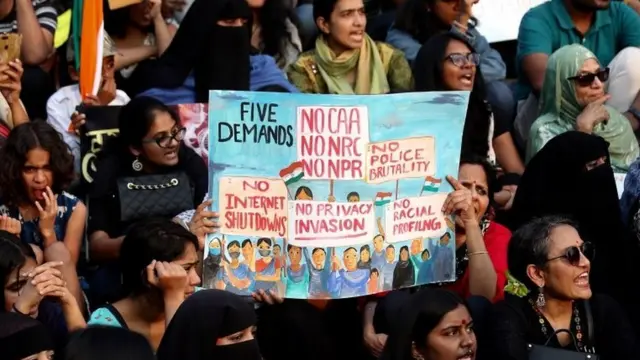 FIVE
DEMANDS
NO CAA
NO NRC
NO NPR
NO
POLICE
BRUTALITY
NO
INTERNET
SHUTDOWNS
NO PRIVACY
INVASION
NO
RACIAL
PROFILNG